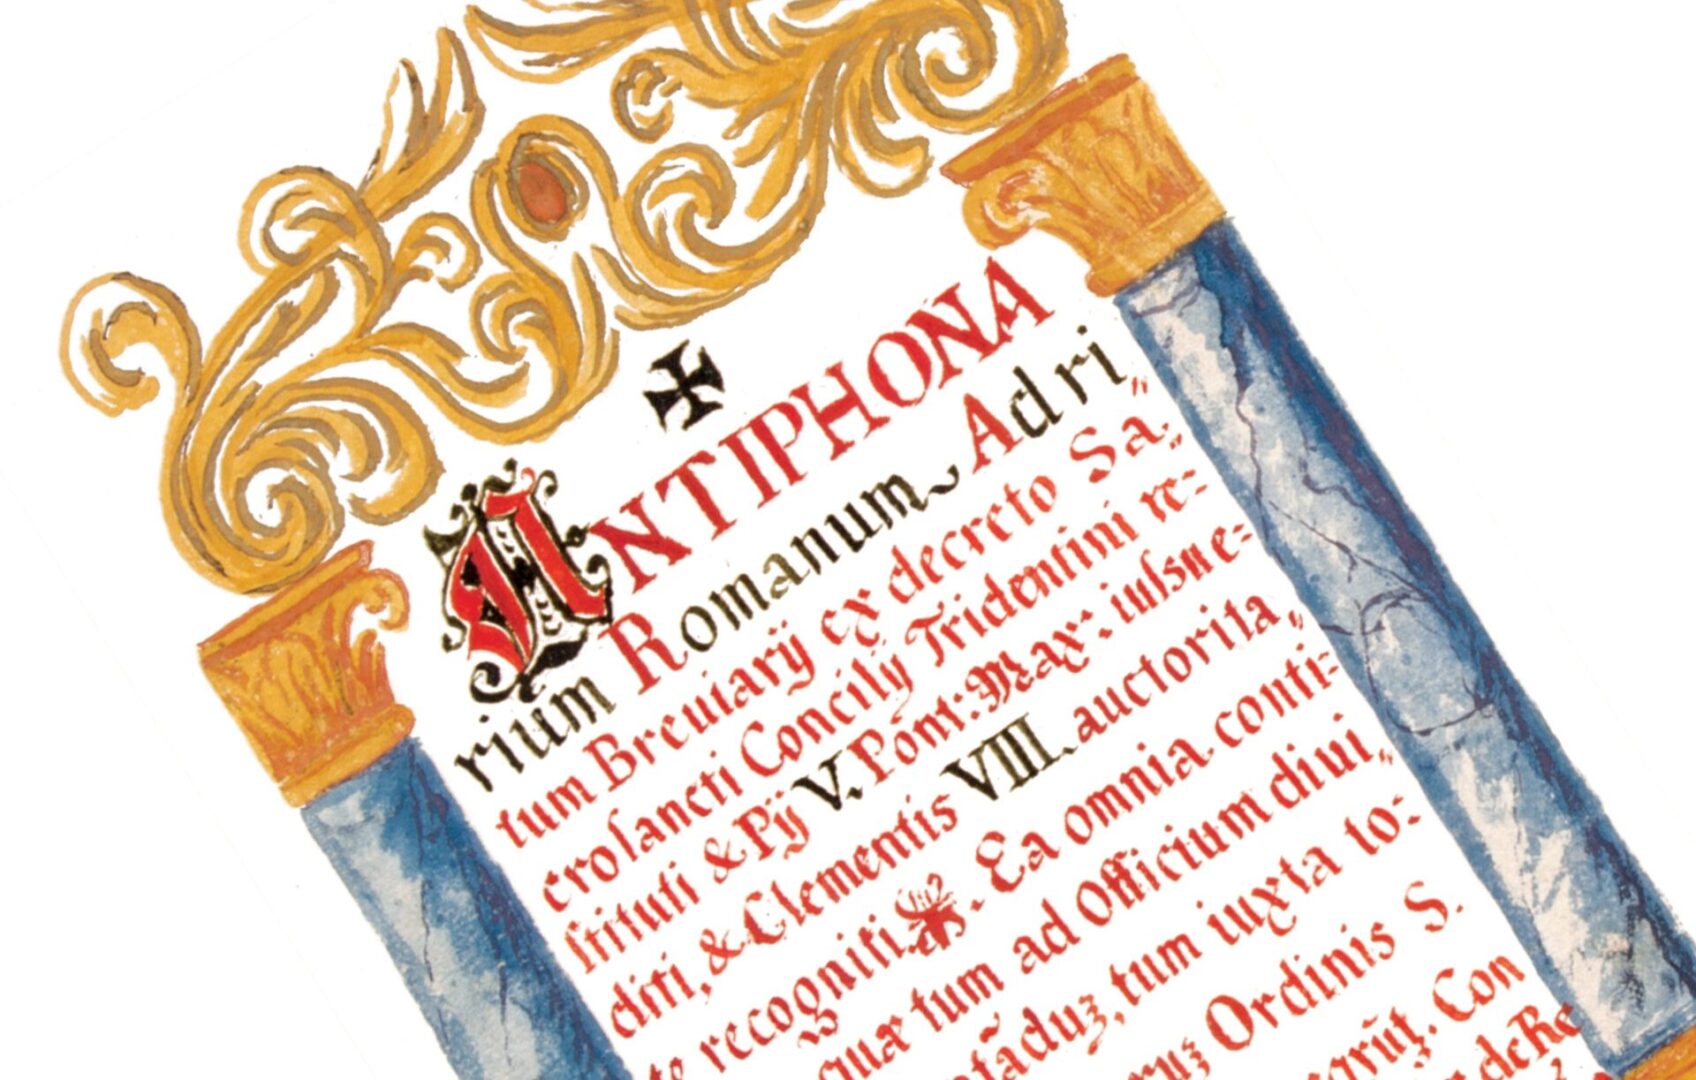 ANTIPHONA
rium Romanum, Ad ri„
tum Breuiarij ex decreto Sa„
croſancti Concilij Tridentini re=
ſtituti & Pij V. Pont: Max: iuſsu e=
diti, & Clementis VIII. auctorita„
te recogniti. Ea omnia conti=
quæ tum ad Officium diui„
tum iuxta to=
Ordinis S.
Con
de Re